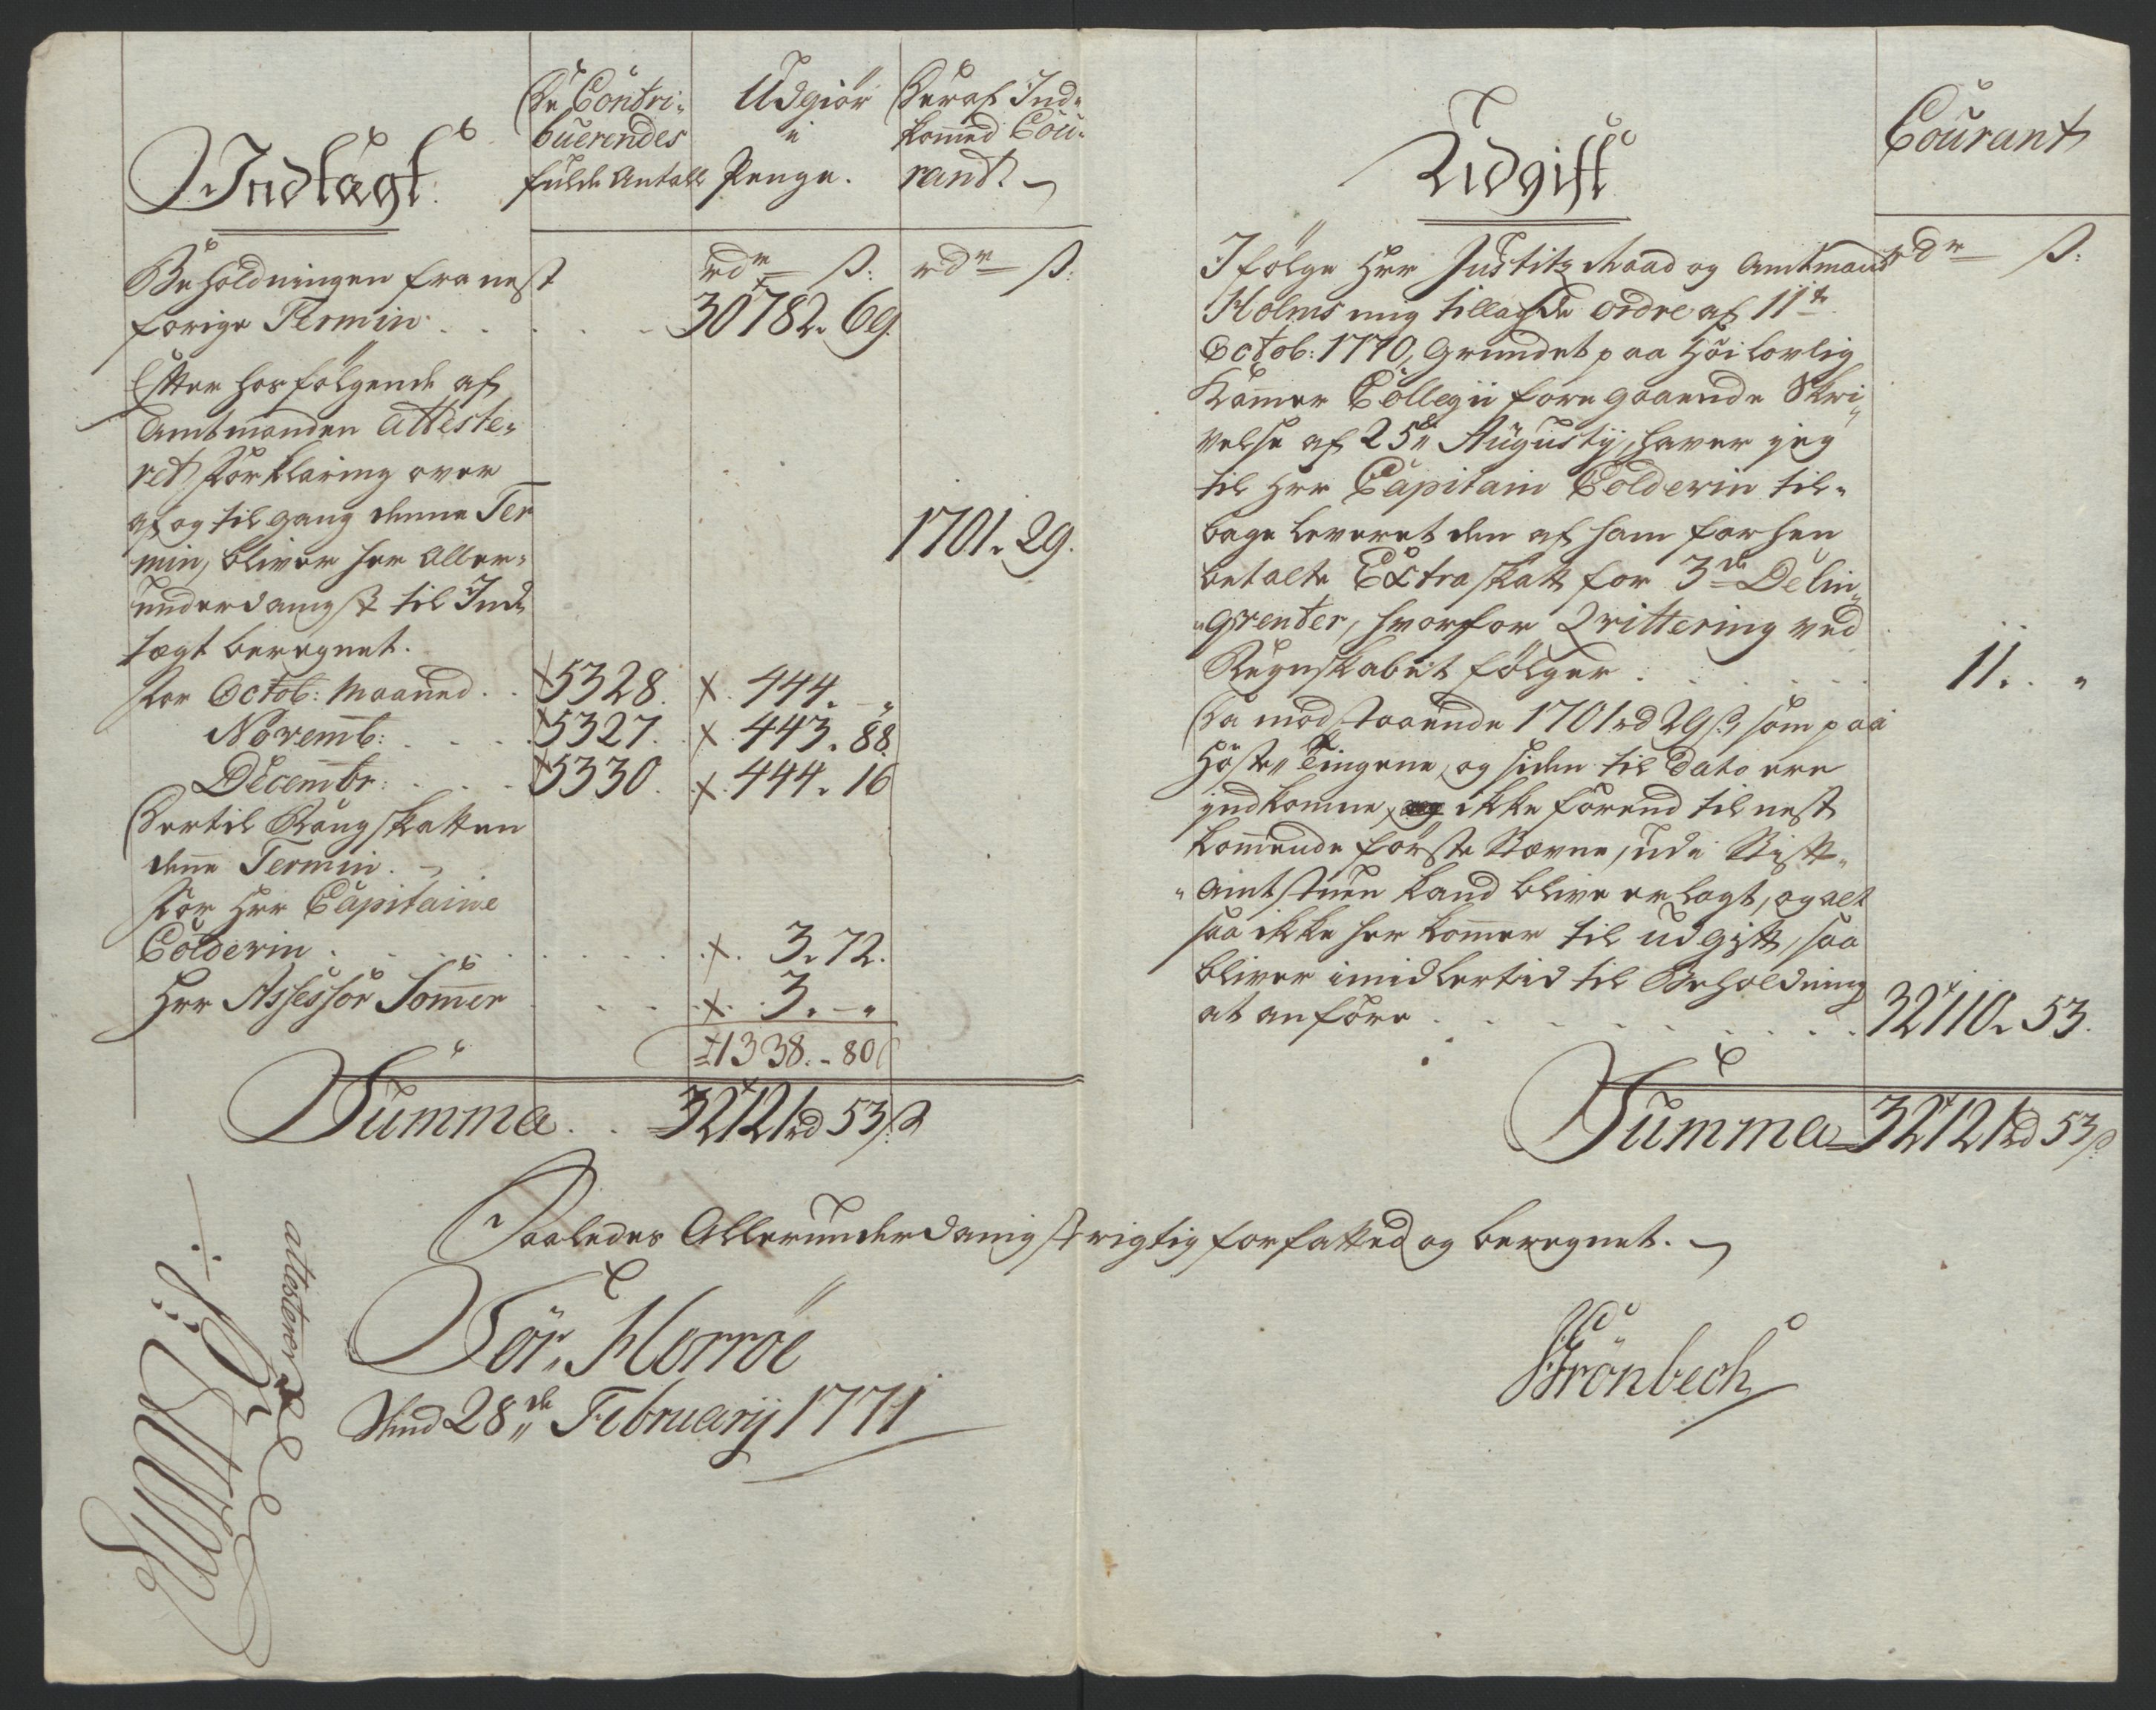 Indtægt.
De Contri-
buerendes
fulde Antall
Udgiør
i
Penge.
Deraf Ind-
kommed Cou-
rant.
rdr ß: rdr ß:
Beholdningen fra nest
forige Termin . . . . . 30782. 69.
Efter hosfølgende af
Amtmanden Atteste-
ret Forklaring over
af og tilgang denne Ter
min, bliver her Aller-
underdanigst til Ind-
tægt beregnet. 1701. 29.
For Octob: Maaned . . 5328. 444. - "
Novemb: . . . 5327. 443. 88.
Decembr: . . . 5330. 444. 16
Hertil Rangskatten
denne Termin.
For Herr Capitaine
Colderin . . . . . 3. 72.
Herr Assessor Sommer . . . 3. - "
1338. - 80
Summa . . 32121 rd 53 ß
Udgift
Courant
rdr ß:
Ifølge Herr Justitz Raad og Amtmand
Holms mig tillagde ordre af 11te
Octob: 1770, grundet paa Høilovlig
Kammer Collegii foregaaende Skri-
velse af 25" Augustij, haver jeg
til Herr Capitain Colderin til-
bage leveret den af ham forhen
betalte Extraskatt for 3de Delin-
qventer, hvorfor Qvittering ved
Regnskabet følger . . . . . 11. . "
Da modstaaende 1701 rd 29 ß, som paa
Høste Tingene, og siden til Dato ere
indkomne, ikke førend til nest
kommende første Stævne, udi Stift-
amtstuen kand blive erlagt, og alt
saa ikke her kommer til udgift, saa
bliver imidlertid til Beholdning
at anføre . . . . . . . 32110. 53.
Summa 32121 rd 53 ß
Saaledes Allerunderdanigst rigtig forfatted og beregnet.
Sör Horröe
den 28de Februarij 1771
Grönbech
attesterer